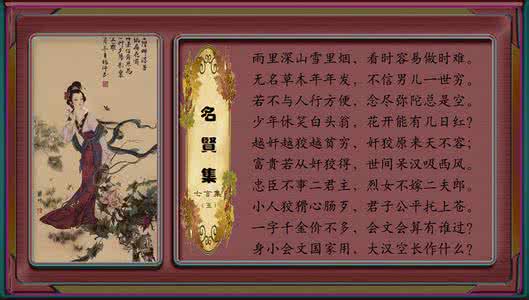 名賢集
七言集
(五)
雨里深山雪里烟、看时容易做时难。
无名草木年年发，不信男儿一世穷。
若不与人行方便，念尽弥陀总是空。
少年休笑白头翁，花开能有几日红？
越奸越狡越贫穷，奸狡原来天不容；
富贵若从奸狡得，世间呆汉吸西风。
忠臣不事二君主，烈女不嫁二夫郎。
小人狡猾心肠歹，君子公平托上苍。
一字千金价不多，会文会算有谁过？
身小会文国家用，大汉空长作什么？